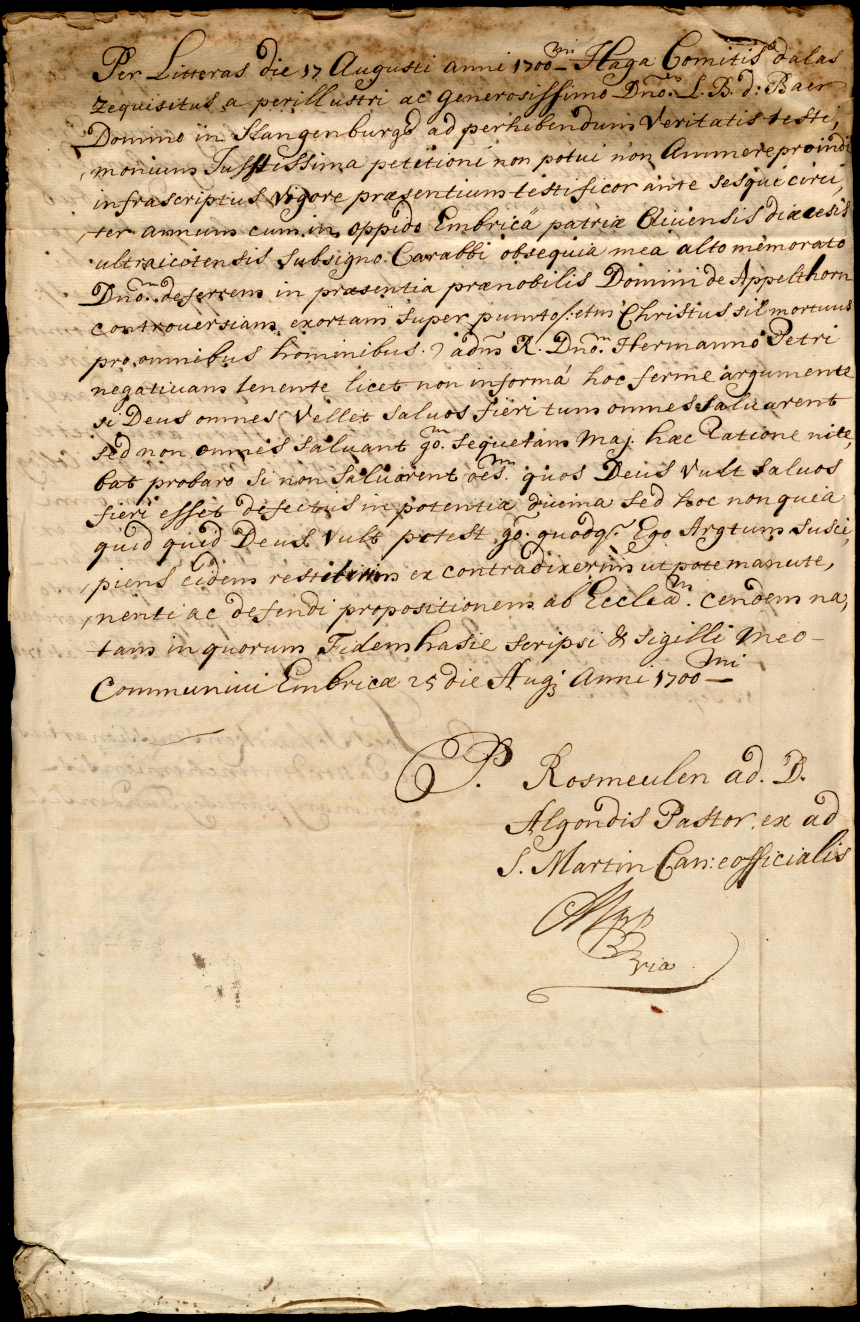 Per Litteras die 17 Augusti anni 1700mi Haga Comitis dalas
requisitus a perillustri ac generosissimo Dno. L. B. d: Baer
Domino in Slangenburgs ad perhibendum Veritatis testi,
monium Justissima petitioni non potui non Annuere proindi
infrascriptus vigore præsentium testificor ante sesqui circi,
ter annum cum in oppido Embricæ patriæ Cliuensis diæcesis
ultraiectensis subsigno Carabbi obsequia mea alto memorato
Dno. deferrem in præsentia prænobilis Domini de Appelthorn
controversiam exortam super puncto /: etm Christus sil mortuus
pro omnibus hominibus :/ adm R. Dno. Hermanno Petri
negatiuam tenente licet non informâ hoc ferme argumente
si Deus omnes vellet saluos fieri tum omnes saluarent
sed non omnes saluant go. sequelam Maj. hac Ratione nite,
bat probare si non saluarent oes. quos Deus Vult saluos
fieri esset defectus in potentia diuina sed hoc non quia
quid quid Deus Vult potest go. quodq. Ego Argtum susci,
piens eidem restitim ex contradixerim ut pote manute,
nenti ac defendi propositionem ab Ecclea. condem na,
tam in quorum Fidem hasie scripsi & sigilli meo
Communiui Embricæ 25 die Augi Anni 1700mi
P. Rosmeulen ad. D.
Algondis Pastor. ex ad
S. Martin Can: e officialis